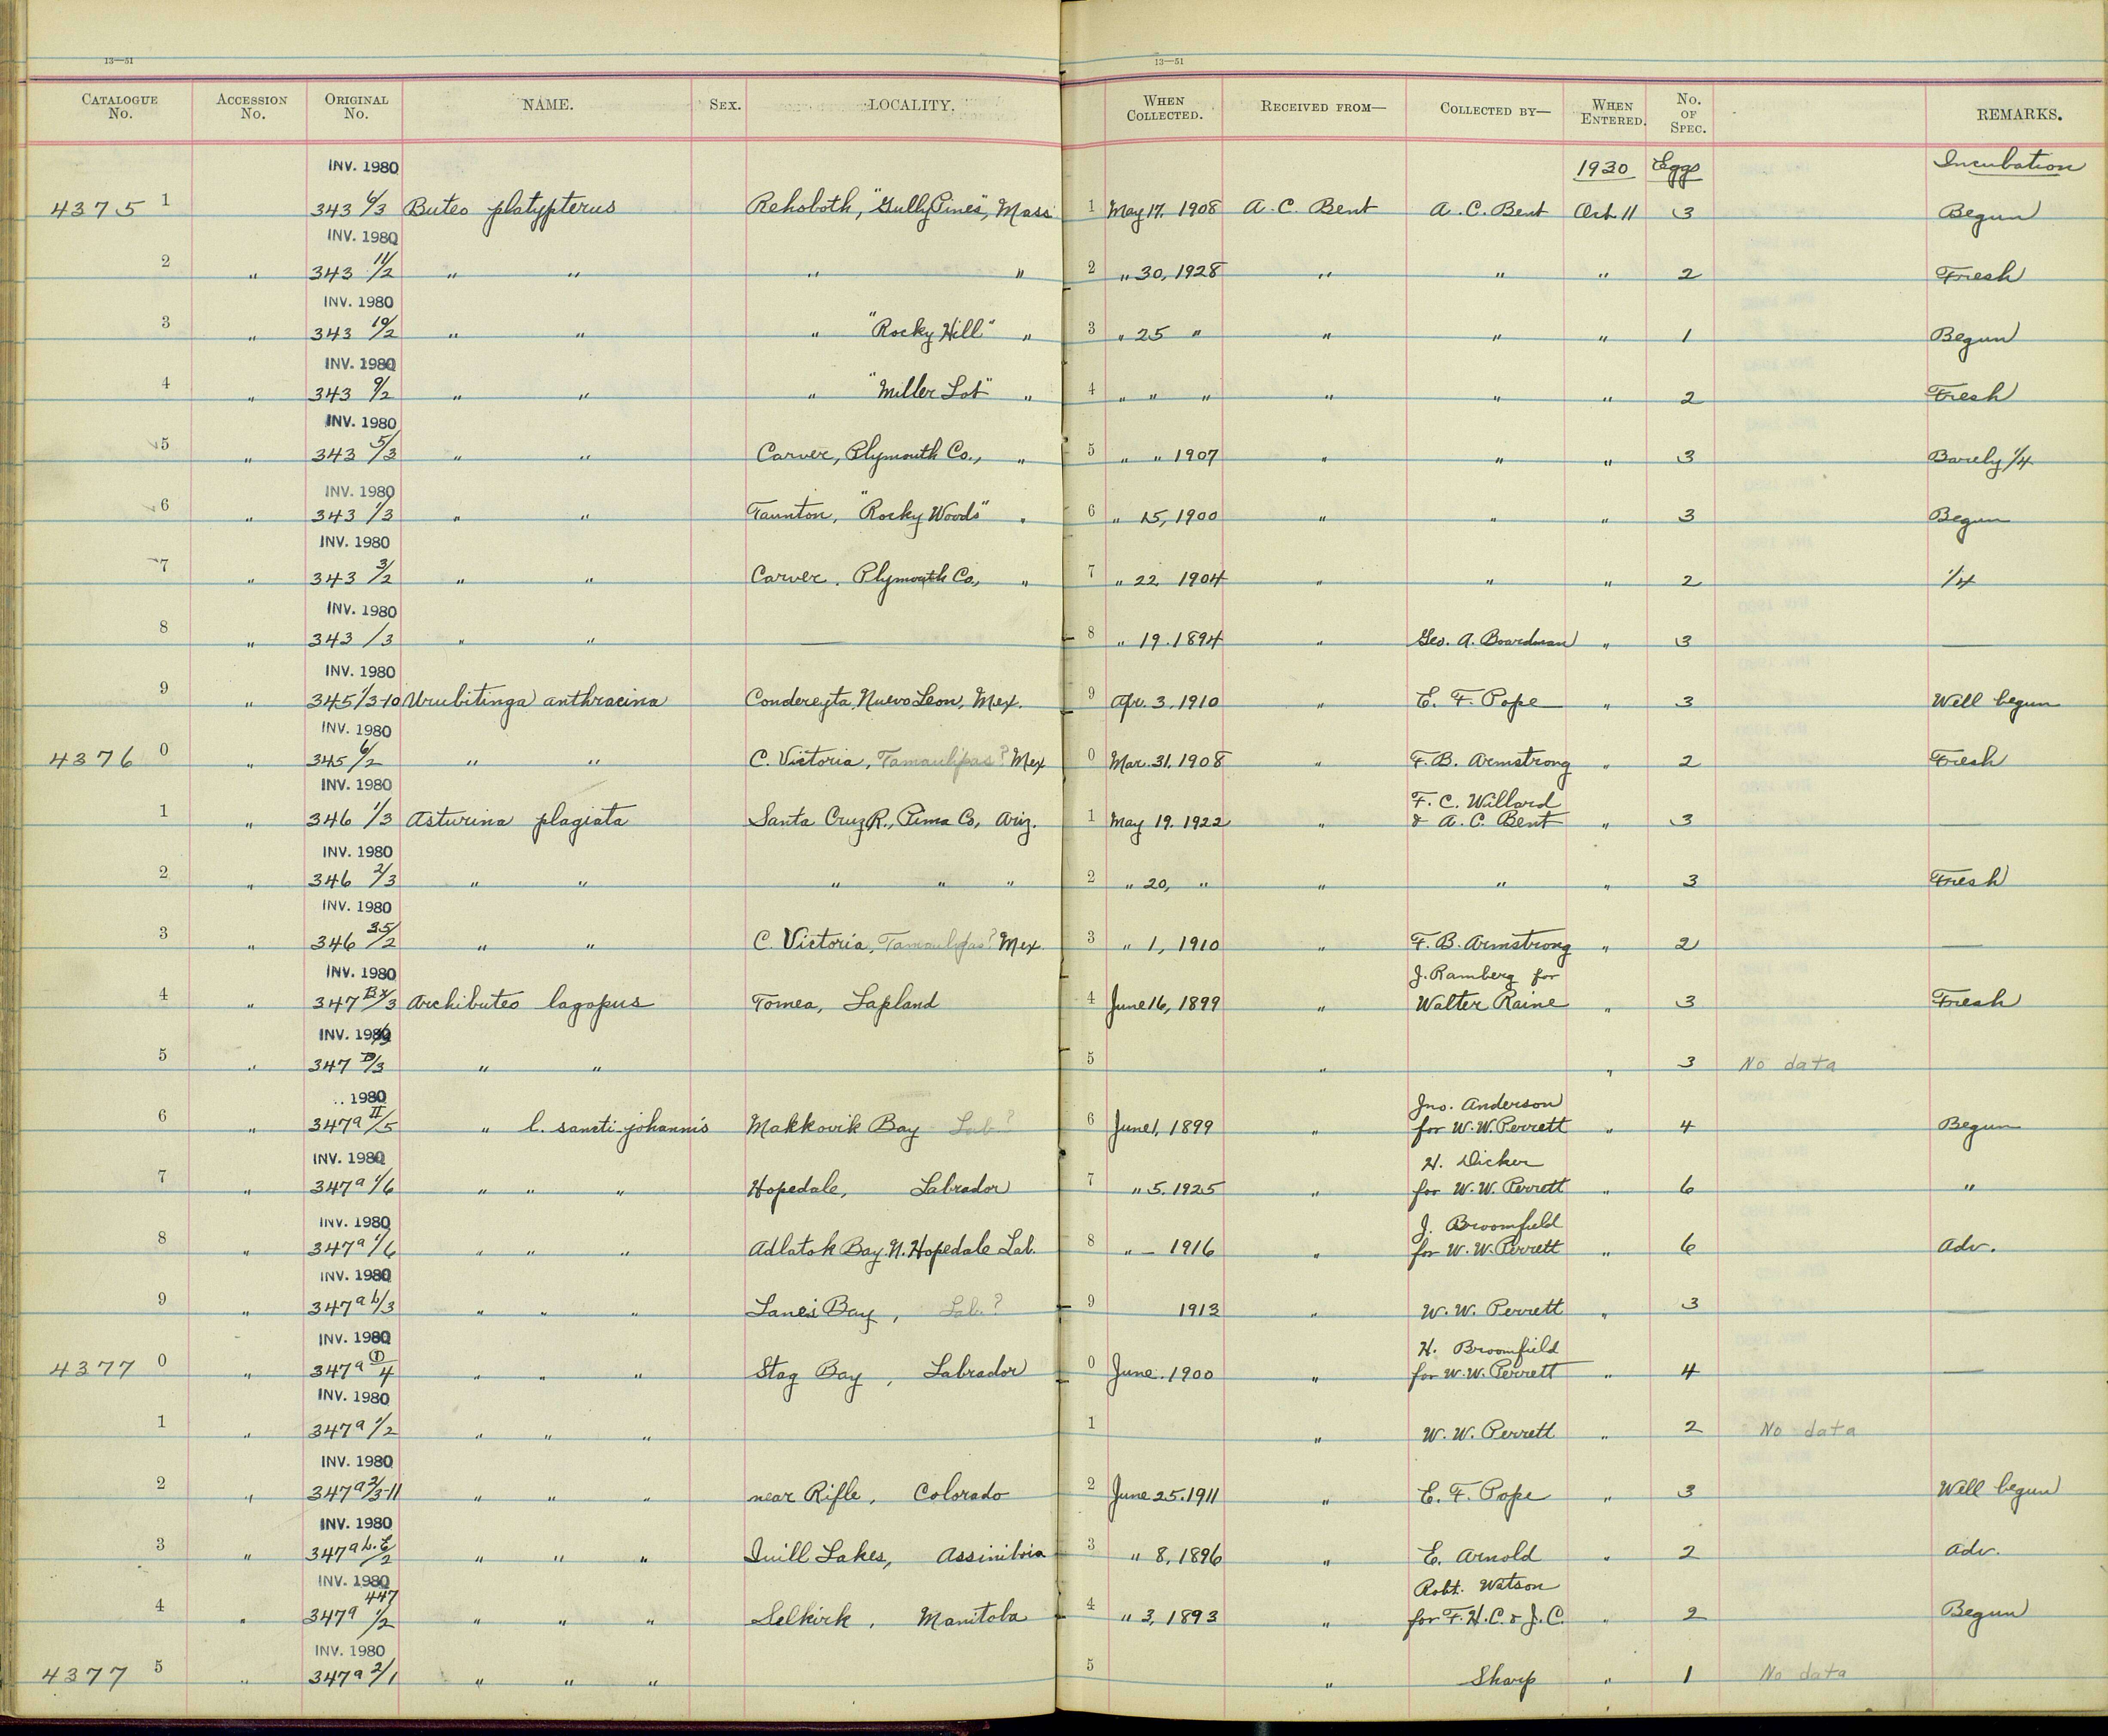 13—51 13—51
CATALOGUE No. ACCESSION No. ORIGINAL No. NAME. SEX. LOCALITY. WHEN COLLECTED. RECEIVED FROM— COLLECTED BY— WHEN ENTERED. No. OF SPEC. REMARKS.
INV. 1980 1930 Eggs Incubation
4375 1 343 6/3 Buteo platypterus Rehoboth, "Gully Pines", Mass 1 May 17, 1908 A. C. Bent A. C. Bent Oct. 11 3 Begun
INV. 1980
2 " 343 11/2 " " " " 2 " 30, 1928 " " " 2 Fresh
INV. 1980
3 " 343 10/2 " " " "Rocky Hill" " 3 " 25 " " " " 1 Begun
INV. 1980
4 " 343 9/2 " " " "Miller Lot" " 4 " " " " " " 2 Fresh
INV. 1980
5 " 343 5/3 " " Carver, Plymouth Co., " 5 " " 1907 " " " 3 Barely 1/4
INV. 1980
6 " 343 1/3 " " Taunton, "Rocky Woods" " 6 " 15, 1900 " " " 3 Begun
INV. 1980
7 " 343 3/2 " " Carver, Plymouth Co., " 7 " 22 1904 " " " 2 1/4
INV. 1980
8 " 343 /3 " " — 8 " 19. 1894 " Geo. A. Boardman " 3 —
INV. 1980
9 " 345 1/3-10 Urubitinga anthracina Condereyta, Nuevo Leon, Mex. 9 Apr. 3. 1910 " E. F. Pope " 3 Well begun
INV. 1980
4376 0 " 345 6/2 " " C. Victoria, Tamaulipas? Mex 0 Mar. 31. 1908 " F. B. Armstrong " 2 Fresh
INV. 1980 F. C. Willard
1 " 346 1/3 Asturina plagiata Santa Cruz R., Pima Co, Ariz. 1 May 19. 1922 " & A. C. Bent " 3 —
INV. 1980
2 " 346 2/3 " " " " " 2 " 20, " " " " 3 Fresh
INV. 1980
3 " 346 35/2 " " C. Victoria, Tamaulipas? Mex. 3 " 1, 1910 " F. B. Armstrong " 2 —
INV. 1980 J. Ramberg for
4 " 347 Bx/3 Archibuteo lagopus Tornea, Lapland 4 June 16, 1899 " Walter Raine " 3 Fresh
INV. 1980
5 " 347 /3 " " 5 " " 3 No data
1980 Jno. Anderson
6 " 347a II/5 " l. sancti-johannis Makkovik Bay Lab? 6 June 1, 1899 " for W. W. Perrett " 4 Begun
INV. 1980 H. Dicker
7 " 347a 1/6 " " " Hopedale, Labrador 7 " 5. 1925 " for W. W. Perrett " 6 "
INV. 1980 J. Broomfield
8 " 347a 1/6 " " " Adlatok Bay. N. Hopedale Lab. 8 " — 1916 " for W. W. Perrett " 6 Adv.
INV. 1980
9 " 347a b/3 " " " Lane's Bay, Lab? 9 1913 " W. W. Perrett " 3 —
INV. 1980 H. Broomfield
4377 0 " 347a 1/4 " " " Stag Bay, Labrador 0 June. 1900 " for W. W. Perrett " 4 —
INV. 1980
1 " 347a 1/2 " " " 1 " W. W. Perrett " 2 No data
INV. 1980
2 " 347a 2/3-11 " " " near Rifle, Colorado 2 June 25. 1911 " E. F. Pope " 3 Well begun
INV. 1980
3 " 347a /2 " " " Quill Lakes, Assiniboia 3 " 8, 1896 " E. Arnold " 2 Adv.
INV. 1980 447 Robt. Watson
4 " 347a 1/2 " " " Selkirk, Manitoba 4 " 3, 1893 " for F. H. C. & J. C. " 2 Begun
INV. 1980
4377 5 " 347a 2/1 " " " 5 " Sharp " 1 No data